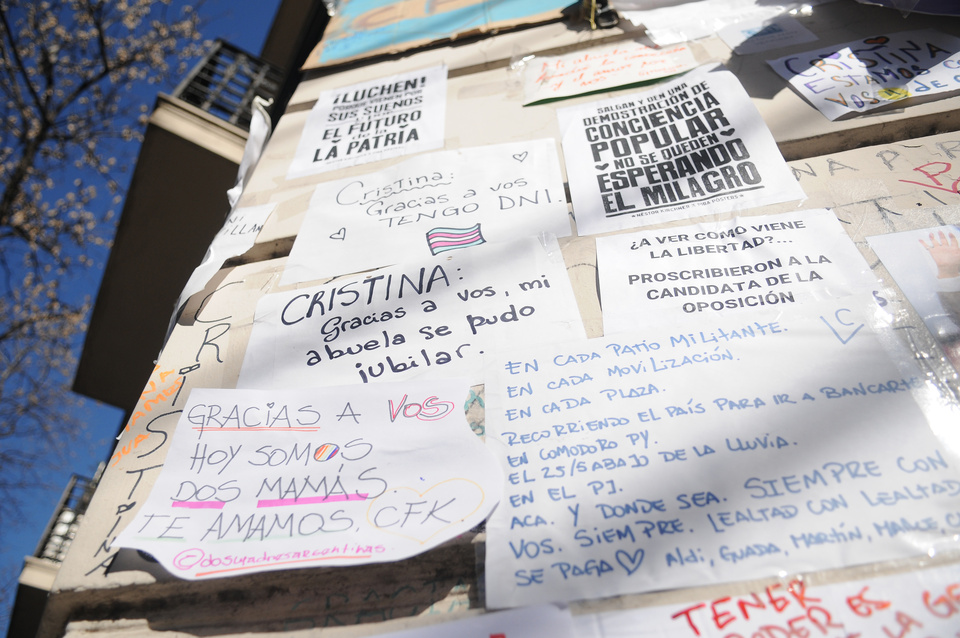 ¡LUCHEN!
PORQUE VIENEN POR
SUS SUEÑOS
Y POR
EL FUTURO
de la
LA PATRIA
SALGAN Y DEN UNA
DEMOSTRACIÓN DE
CONCIENCIA
POPULAR
NO SE QUEDEN
ESPERANDO
EL MILAGRO
NÉSTOR KIRCHNER
CRISTINA
ESTAMOS
VOS
Cristina:
Gracias a vos
TENGO DNI.
¿A VER COMO VIENE
LA LIBERTAD?...
PROSCRIBIERON A LA
CANDIDATA DE LA
OPOSICIÓN
CRISTINA:
Gracias a vos, mi
abuela se pudo
jubilar.
CRISTINA
GRACIAS A VOS
HOY SOMOS
DOS MAMÁS.
TE AMAMOS. CFK.
@dosmadresargentinas
EN CADA PATIO MILITANTE.
EN CADA MOVILIZACIÓN.
EN CADA PLAZA.
RECORRIENDO EL PAÍS PARA IR A BANCARTE
EN COMODORO PY.
EL 25/5 ABAJO DE LA LLUVIA.
EN EL PJ.
ACA. Y DONDE SEA. SIEMPRE CON
VOS. SIEMPRE. LEALTAD CON LEALTAD
SE PAGA Aldi, Guada, Martín,
TENER
PODER ES
LA